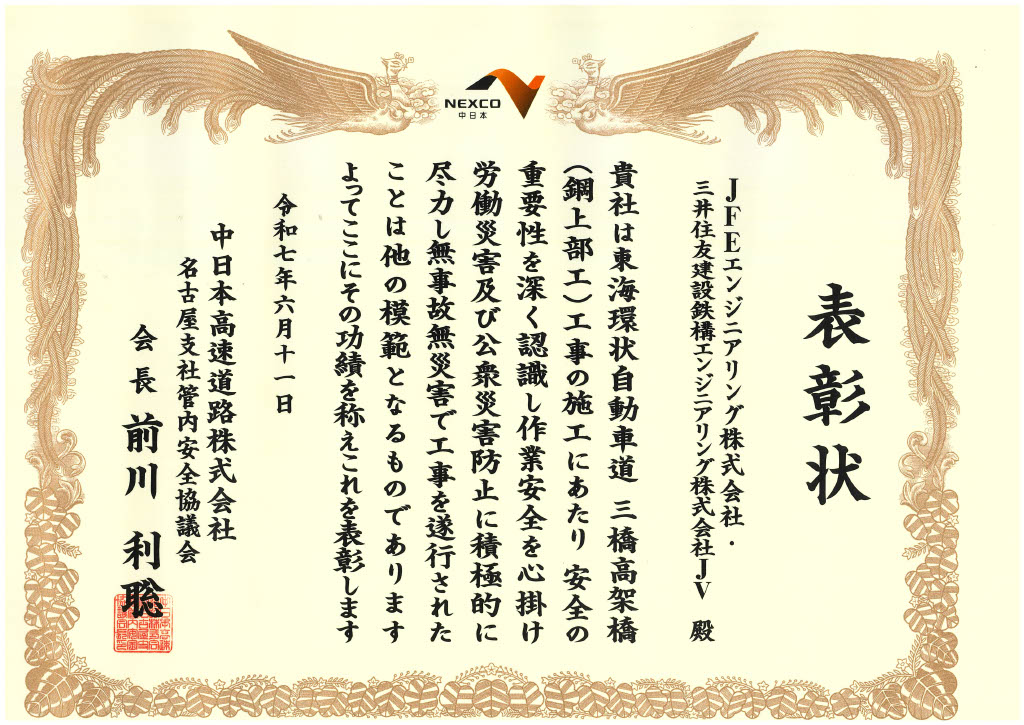 NEXCO
中日本
表彰状
JFEエンジニアリング株式会社・
三井住友建設鉄構エンジニアリング株式会社JV 殿
貴社は東海環状自動車道 三橋高架橋
(鋼上部工)工事の施工にあたり 安全の
重要性を深く認識し作業安全を心掛け
労働災害及び公衆災害防止に積極的に
尽力し無事故無災害で工事を遂行された
ことは他の模範となるものであります
よってここにその功績を称えこれを表彰します
令和七年六月十一日
中日本高速道路株式会社
名古屋支社管内安全協議会
会長 前川 利聡